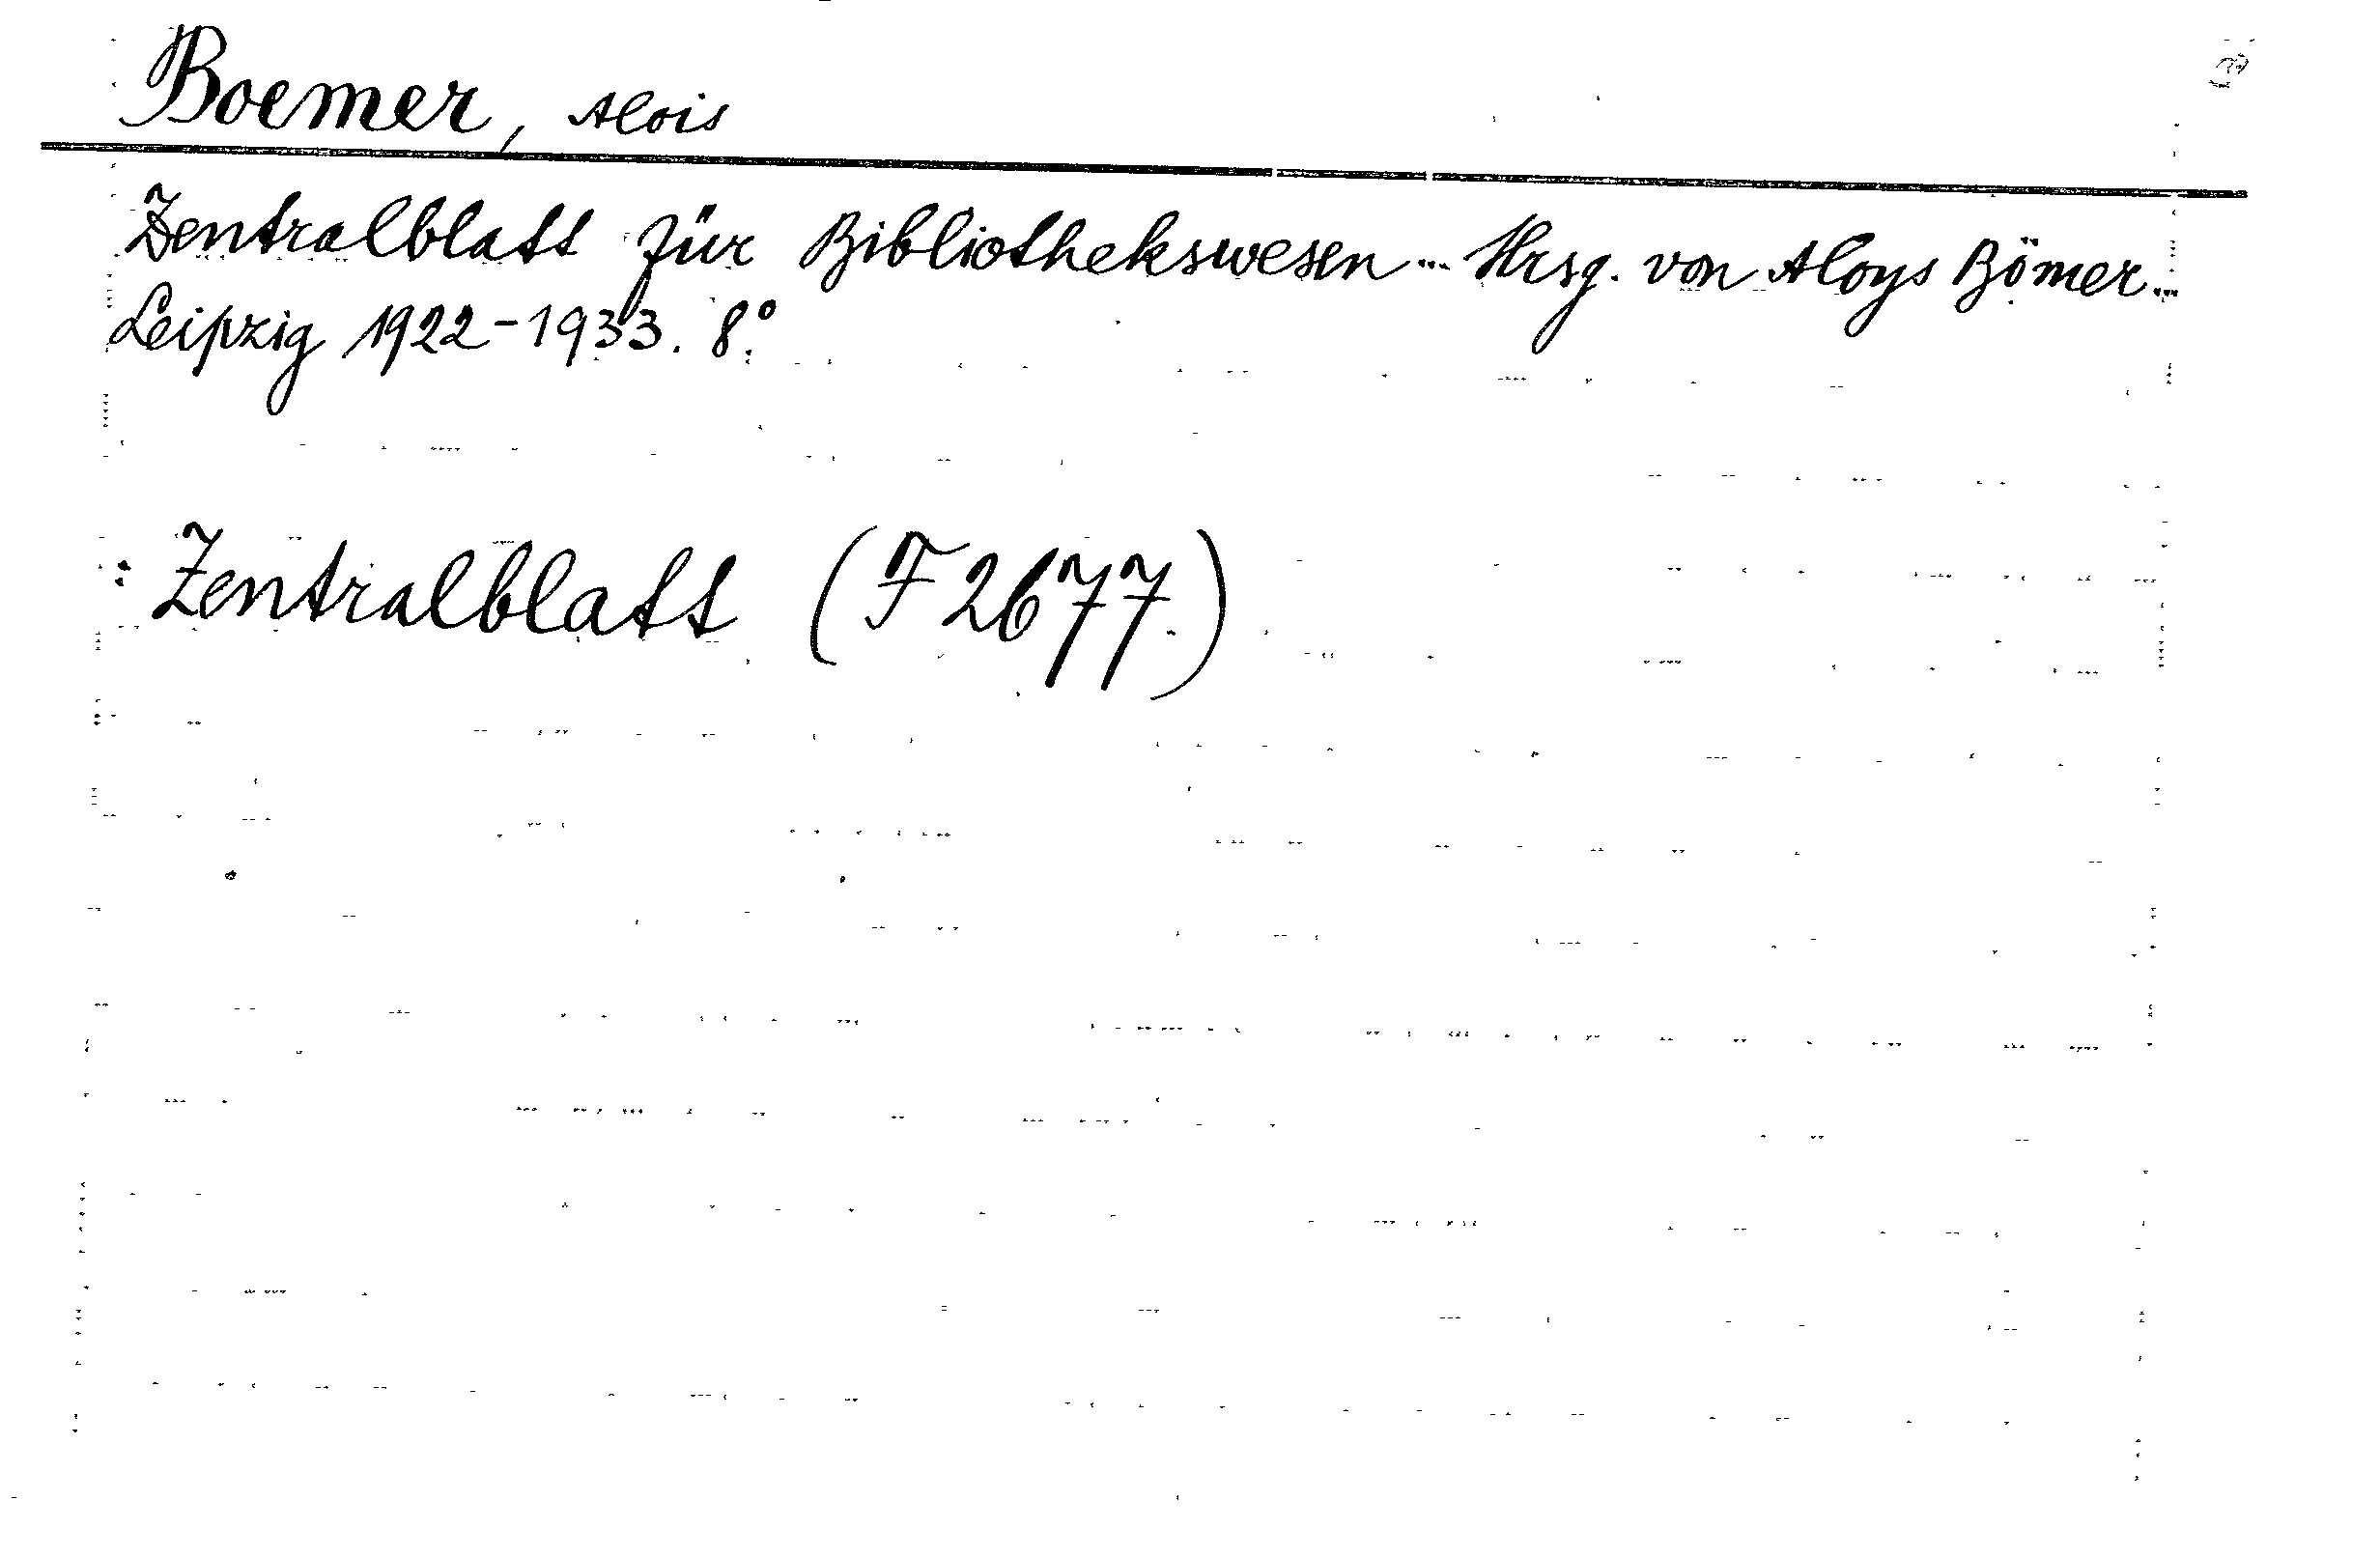 Boemer, Alois
Zentralblatt für Bibliothekswesen... Hrsg. von Aloys Bömer...
Leipzig 1922-1933. 8°.
: Zentralblatt (F 2677.)